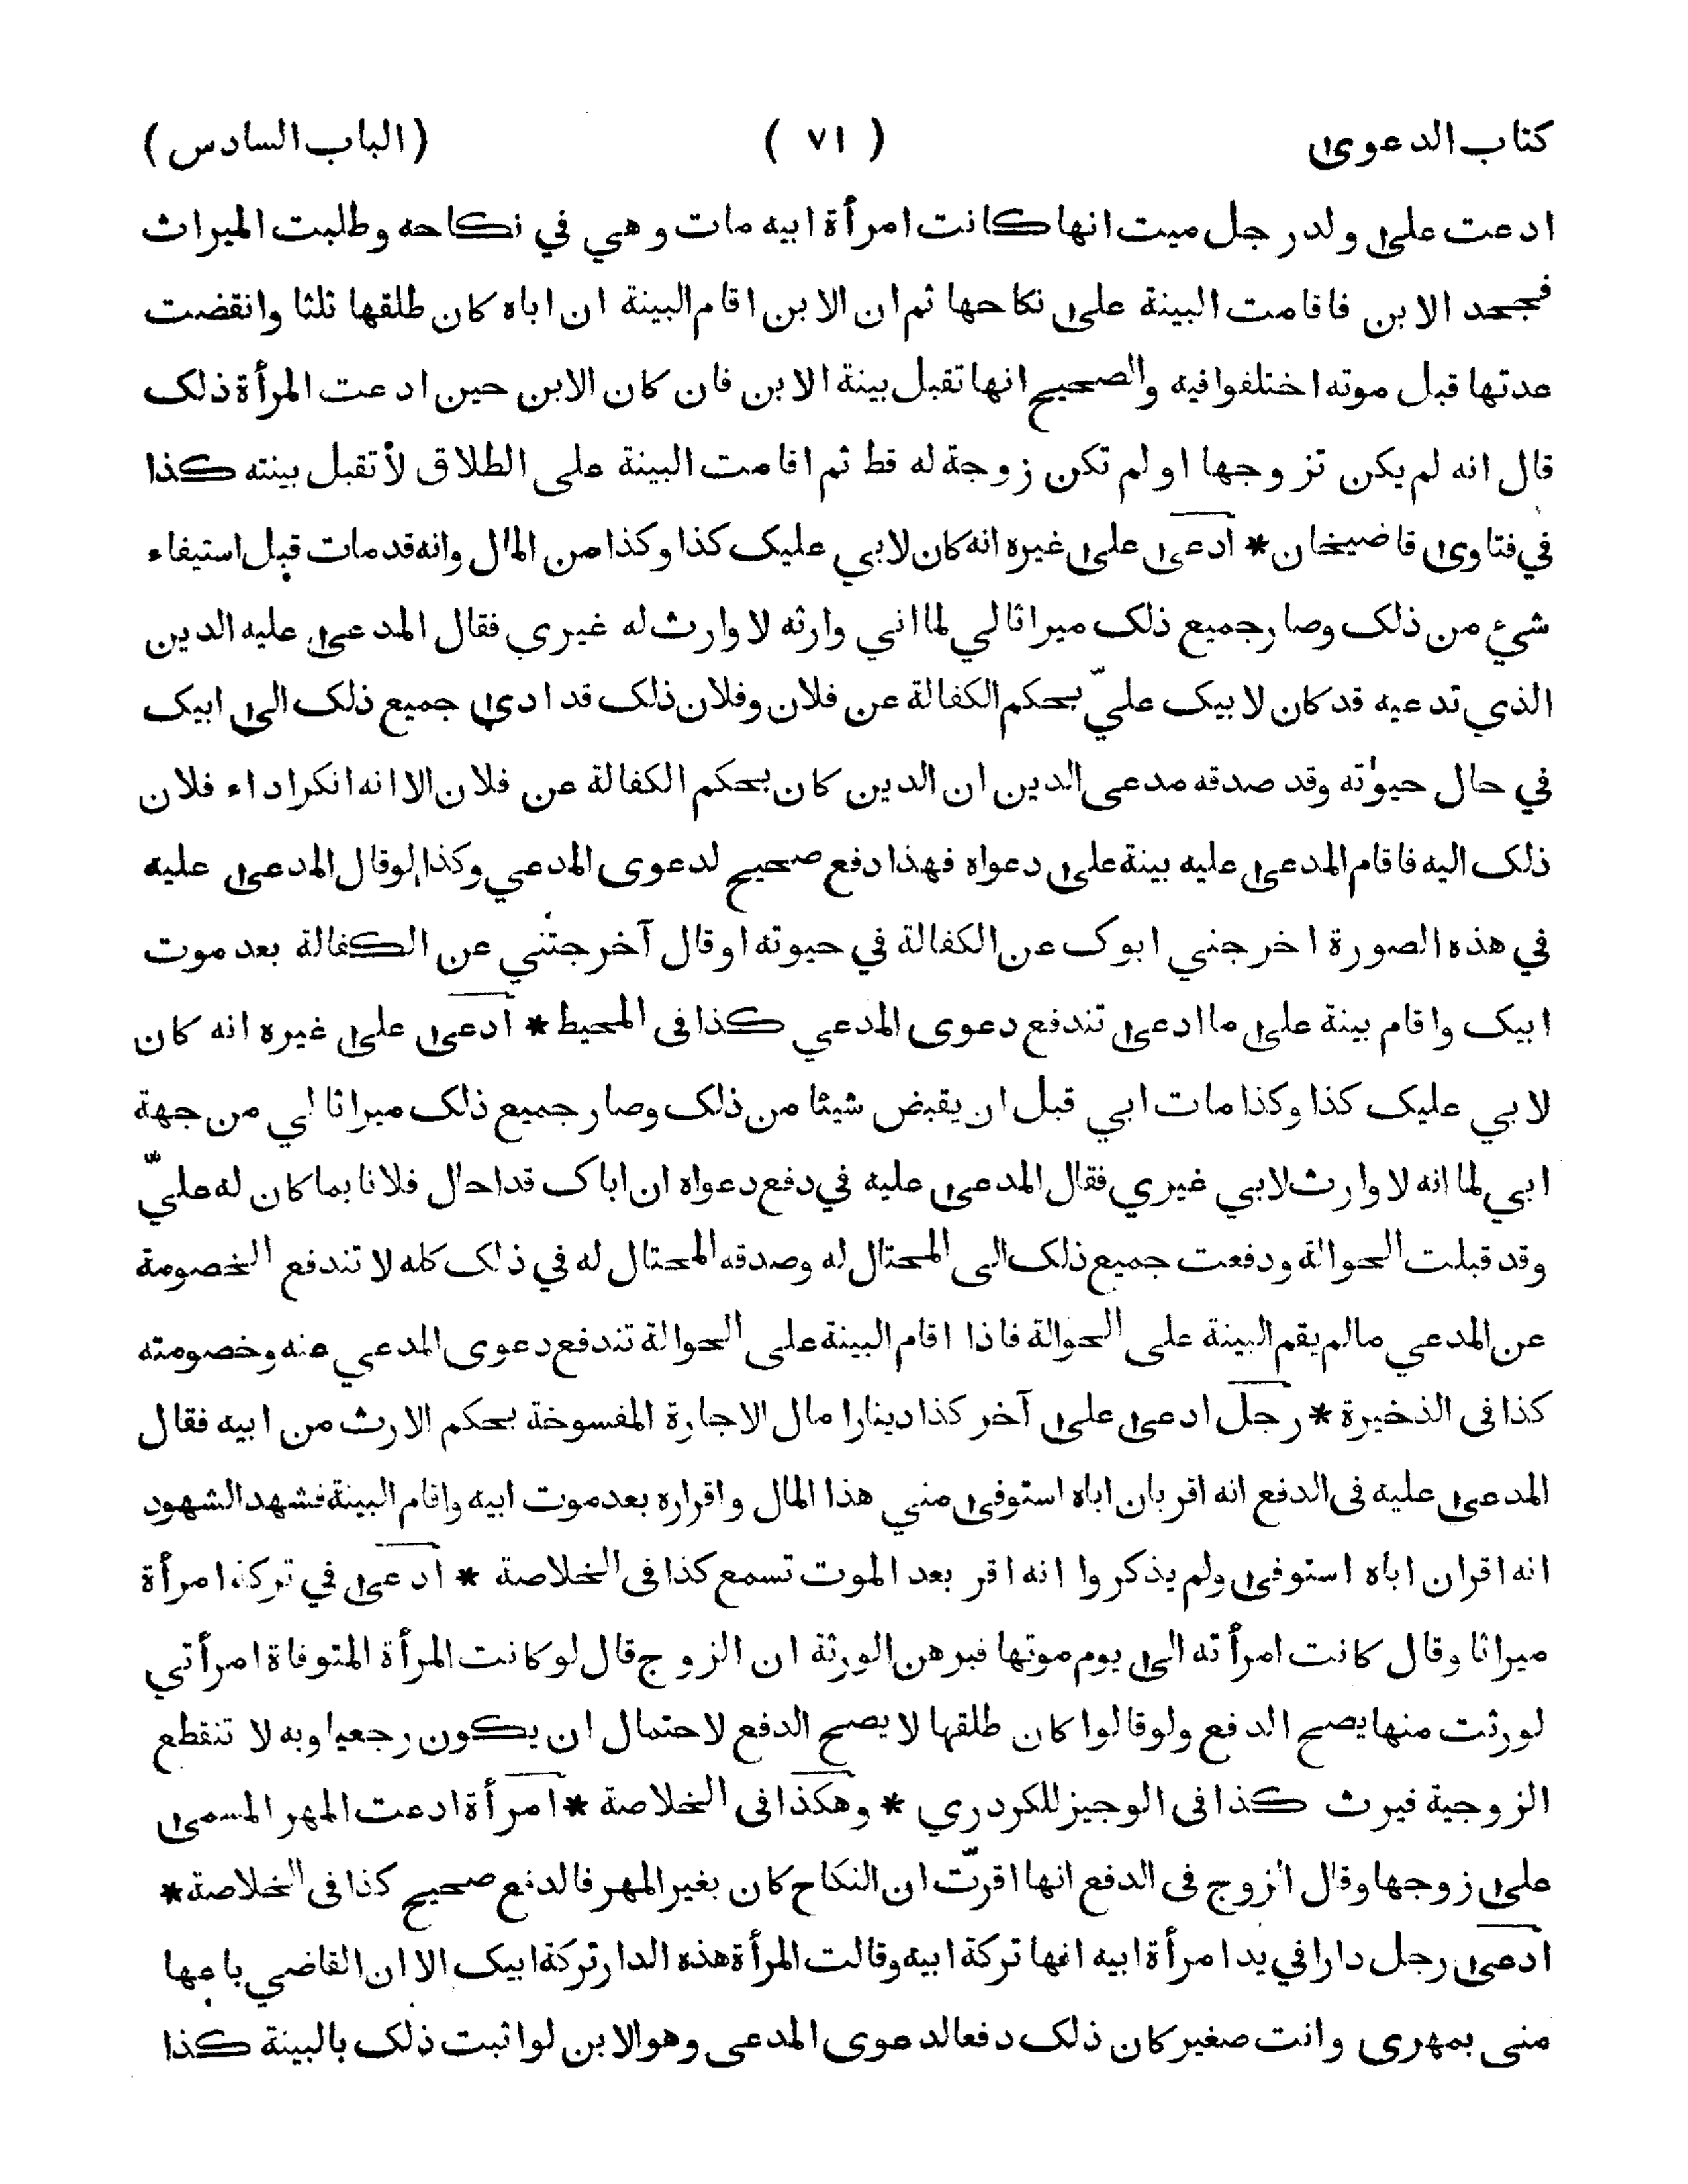 كتاب الدعوى ( ٧١ ) (الباب السادس)
ادعت على ولد رجل ميت انها كانت امرأة ابيه مات وهي في نكاحه وطلبت الميراث
فجحد الابن فاقامت البينة على نكاحها ثم ان الابن اقام البينة ان اباه كان طلقها ثلثا وانقضت
عدتها قبل موته اختلفوا فيه والصحيح انها تقبل بينة الابن فان كان الابن حين ادعت المرأة ذلك
قال انه لم يكن تزوجها او لم تكن زوجة له قط ثم اقامت البينة على الطلاق لأتقبل بينته كذا
في فتاوى قاضيخان * ادعى على غيره انه كان لابي عليك كذا وكذا من المال وانه قد مات قبل استيفاء
شيء من ذلك وصار جميع ذلك ميراثا لي لما اني وارثه لا وارث له غيري فقال المدعى عليه الدين
الذي تدعيه قد كان لابيك عليّ بحكم الكفالة عن فلان وفلان ذلك قد ادى جميع ذلك الى ابيك
في حال حيوٰته وقد صدقه مدعى الدين ان الدين كان بحكم الكفالة عن فلان الا انه انكر اداء فلان
ذلك اليه فاقام المدعى عليه بينة على دعواه فهذا دفع صحيح لدعوى المدعي وكذا لوقال المدعى عليه
في هذه الصورة اخرجني ابوك عن الكفالة في حيوته او قال آخرجتني عن الكفالة بعد موت
ابيك واقام بينة على ما ادعى تندفع دعوى المدعي كذا فى المحيط * ادعى على غيره انه كان
لابي عليك كذا وكذا مات ابي قبل ان يقبض شيئا من ذلك وصار جميع ذلك ميراثا لي من جهة
ابي لما انه لا وارث لابي غيري فقال المدعى عليه في دفع دعواه ان اباك قد احال فلانا بما كان له عليّ
وقد قبلت الحوالة ودفعت جميع ذلك الى المحتال له وصدقه المحتال له في ذلك كله لا تندفع الخصومة
عن المدعي مالم يقم البينة على الحوالة فاذا اقام البينة على الحوالة تندفع دعوى المدعي عنه وخصومته
كذا فى الذخيرة * رجل ادعى على آخر كذا دينارا مال الاجارة المفسوخة بحكم الارث من ابيه فقال
المدعى عليه فى الدفع انه اقر بان اباه استوفى مني هذا المال واقراره بعد موت ابيه واقام البينة فشهد الشهود
انه اقر ان اباه استوفى ولم يذكروا انه اقر بعد الموت تسمع كذا فى الخلاصة * ادعى في تركة امرأة
ميراثا وقال كانت امرأته الى يوم موتها فبرهن الورثة ان الزوج قال لو كانت المرأة المتوفاة امرأتي
لورثت منها يصح الدفع ولو قالوا كان طلقها لا يصح الدفع لاحتمال ان يكون رجعيا وبه لا تنقطع
الزوجية فيرث كذا فى الوجيز للكردري * وهكذا فى الخلاصة * امرأة ادعت المهر المسمى
على زوجها وقال الزوج فى الدفع انها اقرّت ان النكاح كان بغير المهر فالدفع صحيح كذا فى الخلاصة *
ادعى رجل دارا في يد امرأة ابيه انها تركة ابيه وقالت المرأة هذه الدار تركة ابيك الا ان القاضي باعها
منى بمهرى وانت صغير كان ذلك دفعا لدعوى المدعى وهو الابن لو اثبت ذلك بالبينة كذا